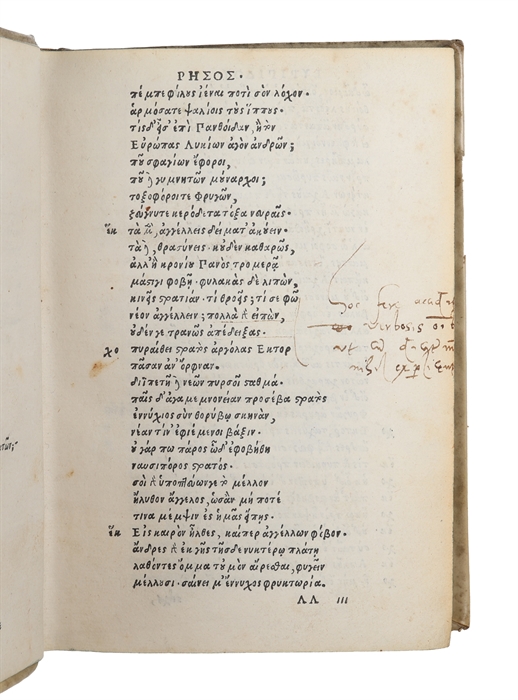 ΡΗΣΟΣ·
πέμπε φίλους ἰέναι ποτὶ σὸν λόχον·
ἁρμόσατε ψαλίοις τοὺς ἵππους·
τίς δ' εἶσ' ἐπὶ Πανθοίδαν, ἢ τὸν
Εὐρώπας Λυκίων ἀγὸν ἀνδρῶν;
ποῦ σφαγίων ἔφοροι,
ποῦ δὲ γυμνητῶν μόναρχοι;
τοξοφόροι τε φρυγῶν,
ζεύγνυτε κερόδετα τόξα νευραῖς·
ἕκ τὰ μὲν ἀγγέλλεις δείματ' ἀκούειν·
τὰ δὲ θρασύνεις· κοὐδὲν καθαρῶς,
ἀλλ' ἢ κρονίου Πανὸς τρομερᾷ
μάστιγι φοβῇ· φυλακὰς δὲ λιπὼν,
κινῇς στρατιάν· τί θροῆς; τί σε φῶ
νέον ἀγγέλλειν; πολλὰ γὰρ εἰπὼν,
οὐδέν γε τρανῶς ἀπέδειξας·
χο πυραίθει στρατὸς ἀργόλας Εκτορ
πᾶσαν ἀν' ὄρφναν·
διιπετῆ δὲ νεῶν πυρσοῖ σταθμά·
παῖς δ' ἀγαμεμνονέαν προσέβα στρατὸς
ἐννύχιος σὺν θορύβῳ σκηνὰν,
νέαν τίν' ἐφιέμενοι βάξιν·
οὐ γάρ πω πάρος ὧδ' ἐφοβήθη
ναυσιπόρος στρατός·
σοὶ δ' ὑποπτεύων γε τὸ μέλλον
ἤλυθον ἄγγελος, ὡς ἂν μή ποτέ
τινα μέμψιν ἐς ἡμᾶς εἴπῃς·
ἕκ Εἰς καιρὸν ἦλθες, καίπερ ἀγγέλλων φόβον·
ἄνδρες γὰρ ἐκ γῆς τῆσδε νυκτέρῳ πλάτῃ
λαθόντες ὄμμα τοὐμὸν αἴρεσθαι, φυγεῖν
μέλλουσι· σαίνει μ' ἔννυχος φρυκτωρία.
ΛΛ iii